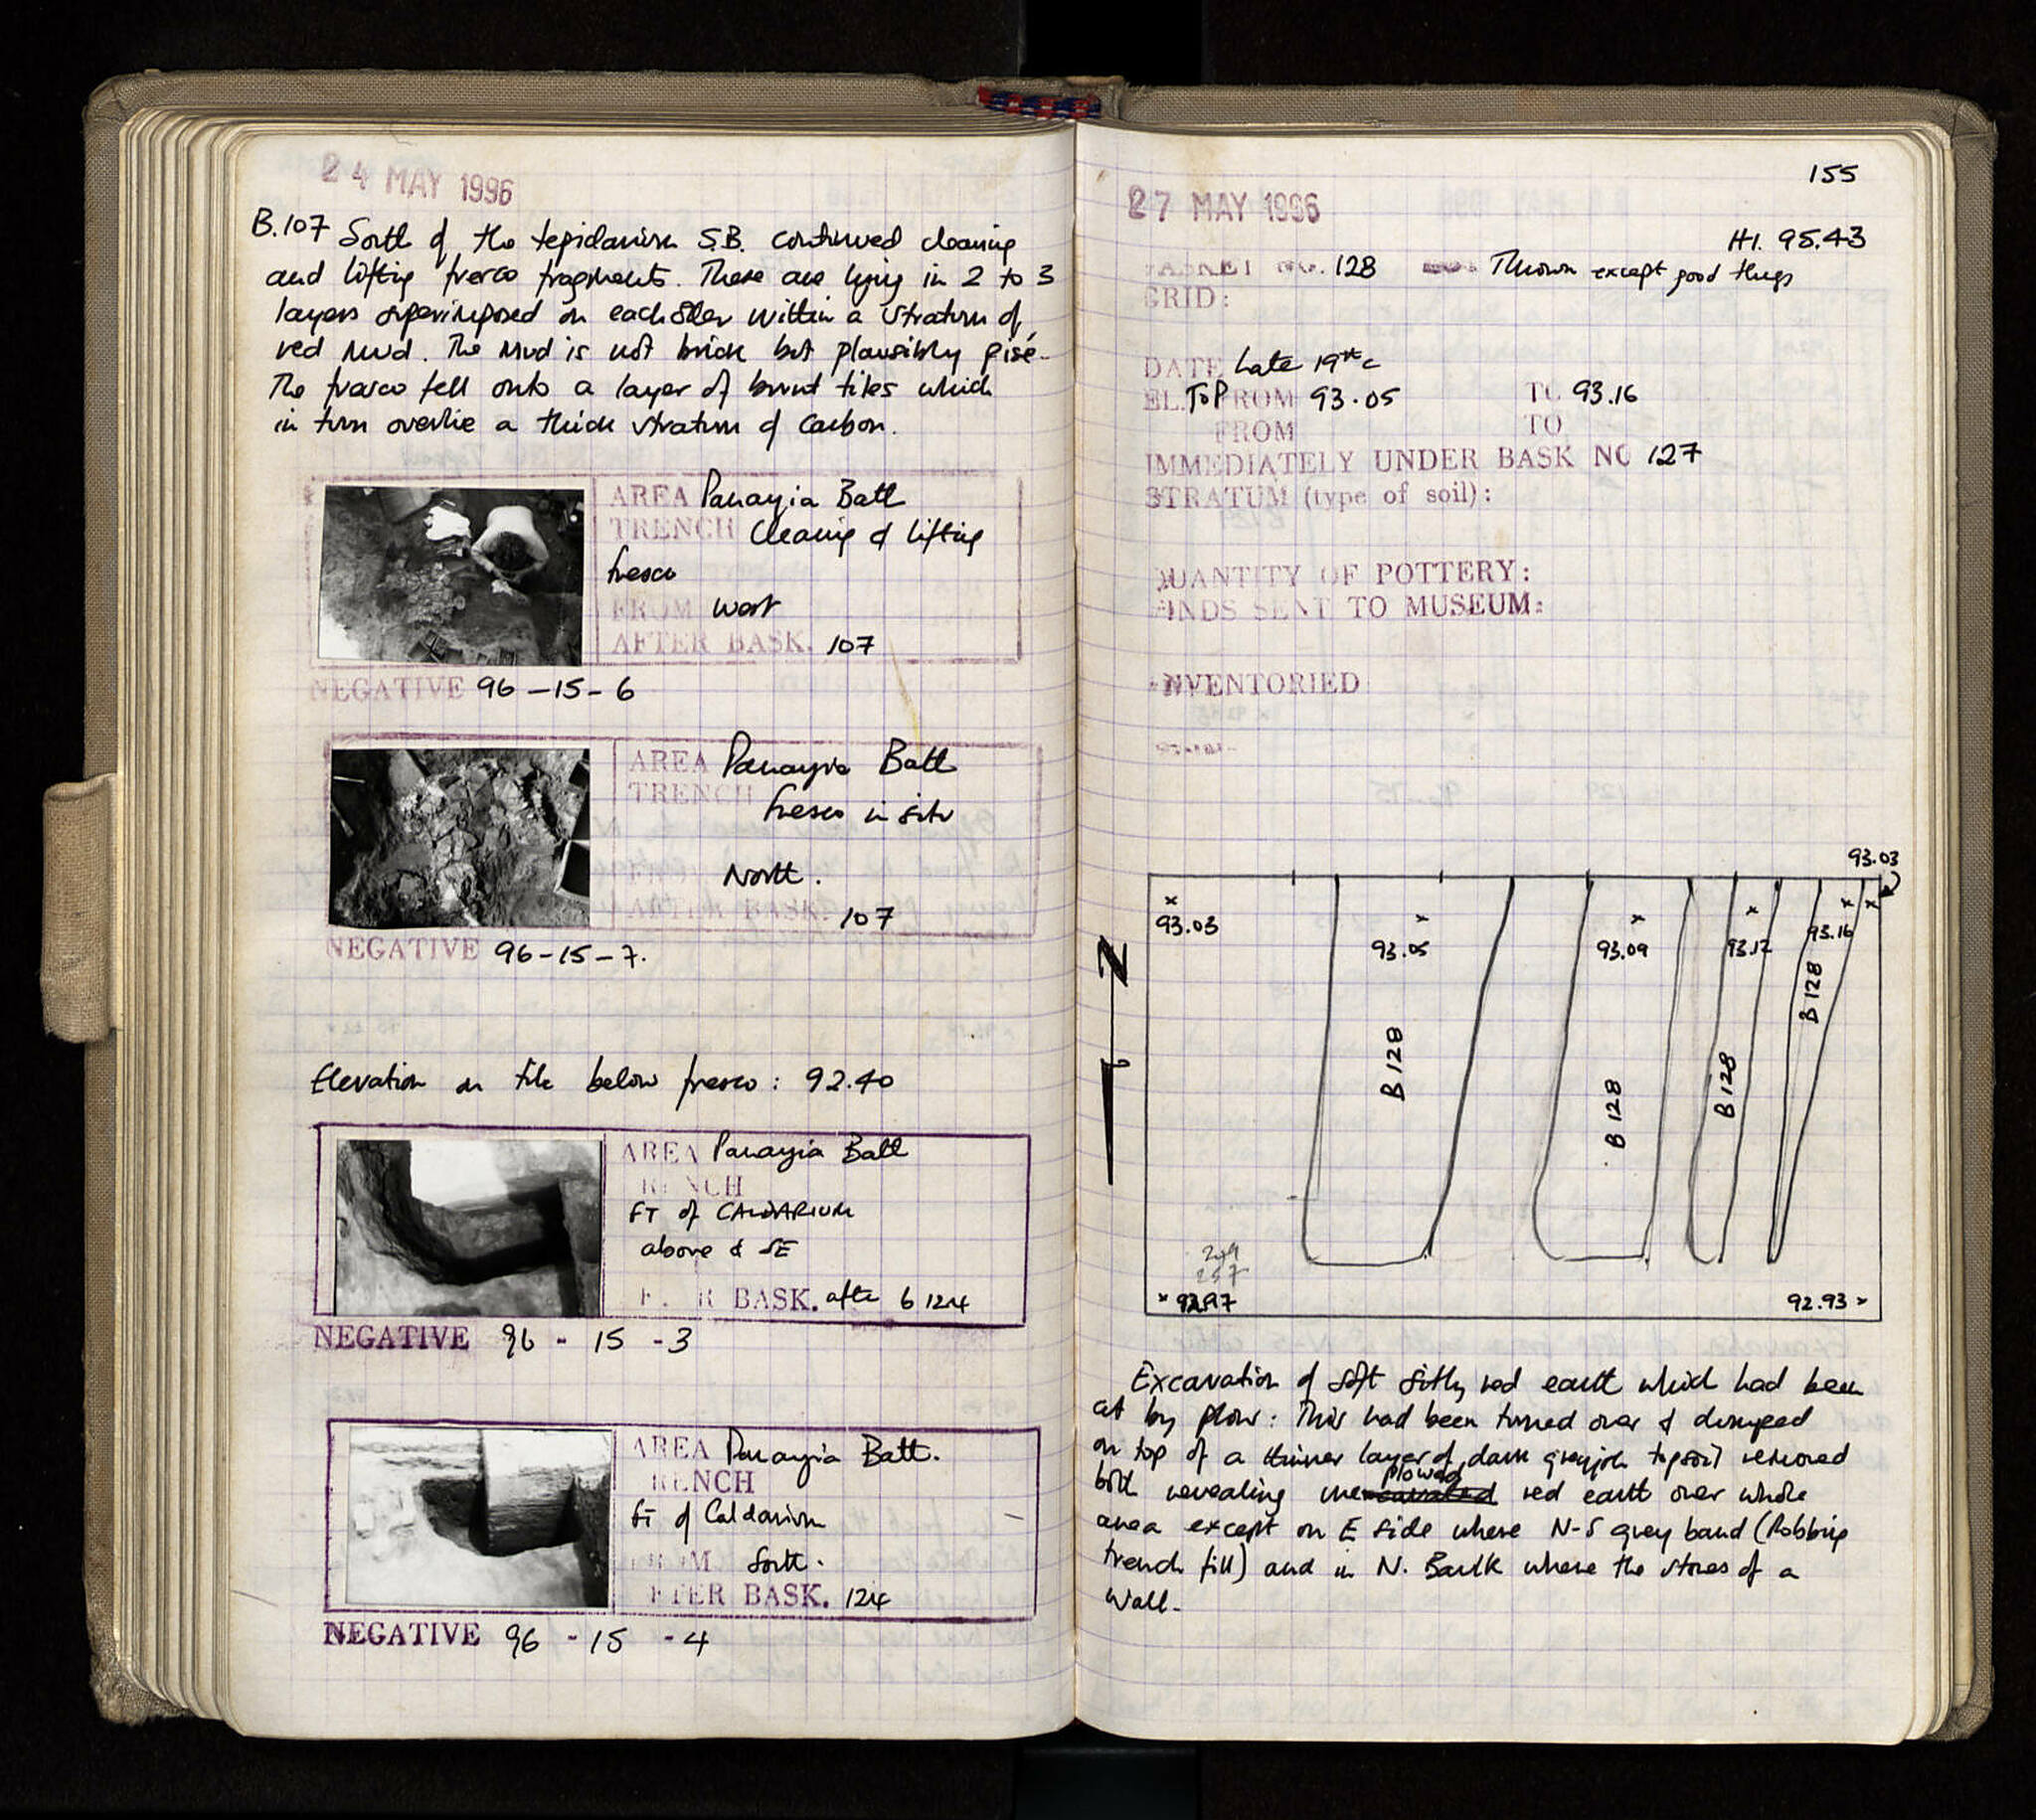 24 MAY 1996
B.107 South of the tepidarium S.B. continued cleaning
and lifting fresco fragments. These are lying in 2 to 3
layers superimposed on each other within a stratum of
red mud. The mud is not brick but plausibly pisé.
The fresco fell onto a layer of burnt tiles which
in turn overlie a thick stratum of carbon.
AREA Panayia Bath
TRENCH Cleaning & lifting
fresco
FROM west
AFTER BASK. 107
NEGATIVE 96-15-6
AREA Panayia Bath
TRENCH fresco in situ
North.
AFTER BASK. 107
NEGATIVE 96-15-7.
Elevation on tile below fresco: 92.40
AREA Panayia Bath
TRENCH
FT of CALDARIUM
above & SE
BASK. after b 124
NEGATIVE 96-15-3
AREA Panayia Bath.
TRENCH
FT of Caldarium
FROM South.
AFTER BASK. 124
NEGATIVE 96-15-4
155
27 MAY 1996
H.I. 95.43
BASKET NO. 128 Thrown except good things
GRID:
DATE Late 19th c
EL. TOP FROM 93.05 TO 93.16
FROM TO
IMMEDIATELY UNDER BASK NO 127
STRATUM (type of soil):
QUANTITY OF POTTERY:
FINDS SENT TO MUSEUM:
INVENTORIED
93.03
93.03
93.05
93.09
93.12
93.16
N
B 128
B 128
B 128
B 128
92.93
Excavation of soft silty red earth which had been
cut by plow: This had been turned over & dumped
on top of a thinner layer of dark greyish topsoil removed
both revealing unplowed red earth over whole
area except on E side where N-S grey band (Robbing
trench fill) and in N. Baulk where the stones of a
wall.